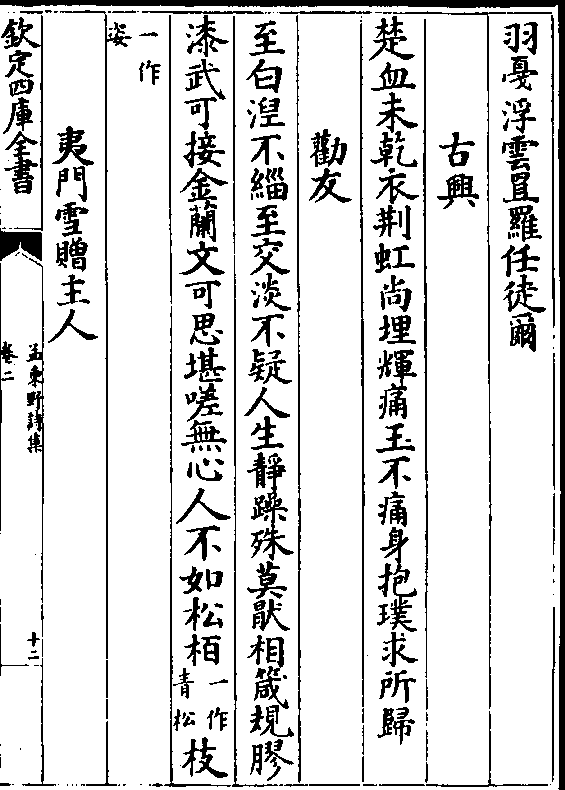 羽戞浮雲罝羅任徒爾
古興
楚血未乾衣荆虹尚埋輝痛玉不痛身抱璞求所歸
勸友
至白湼不緇至交淡不疑人生靜躁殊莫厭相箴規膠
漆武可接金蘭文可思堪嗟無心人不如松栢一作青松枝
一作姿
夷門雪贈主人
欽定四庫全書
孟東野詩集
卷二
十二